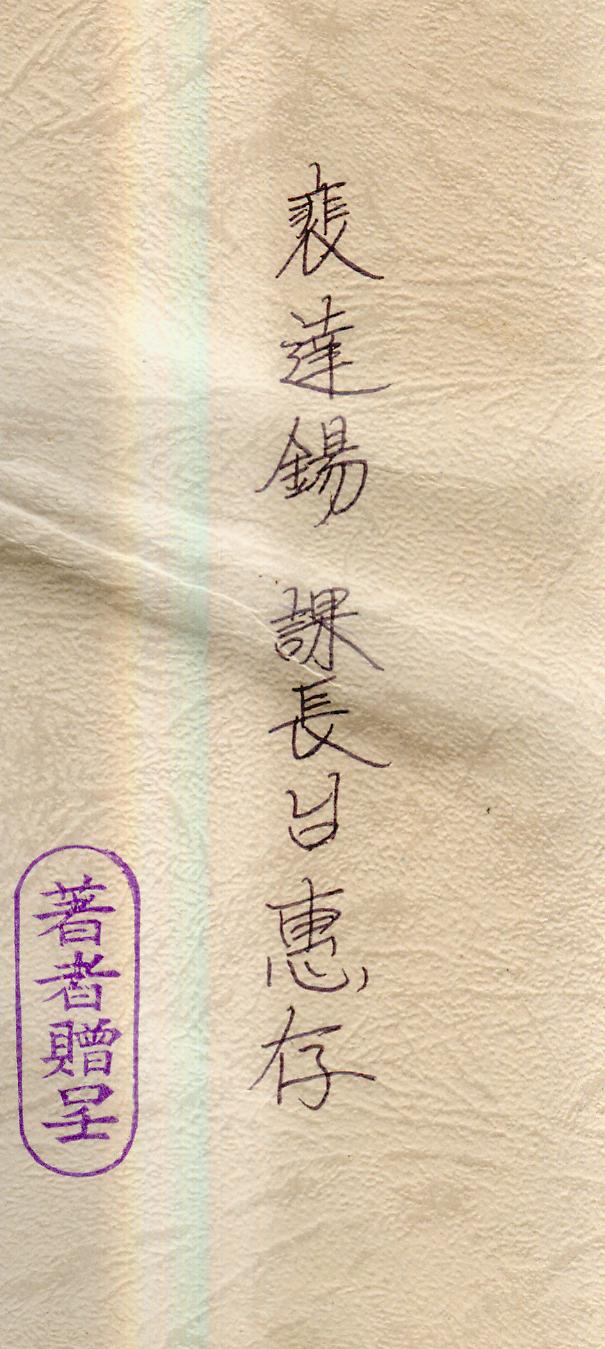 裵達錫 課長님 惠存
著者贈呈